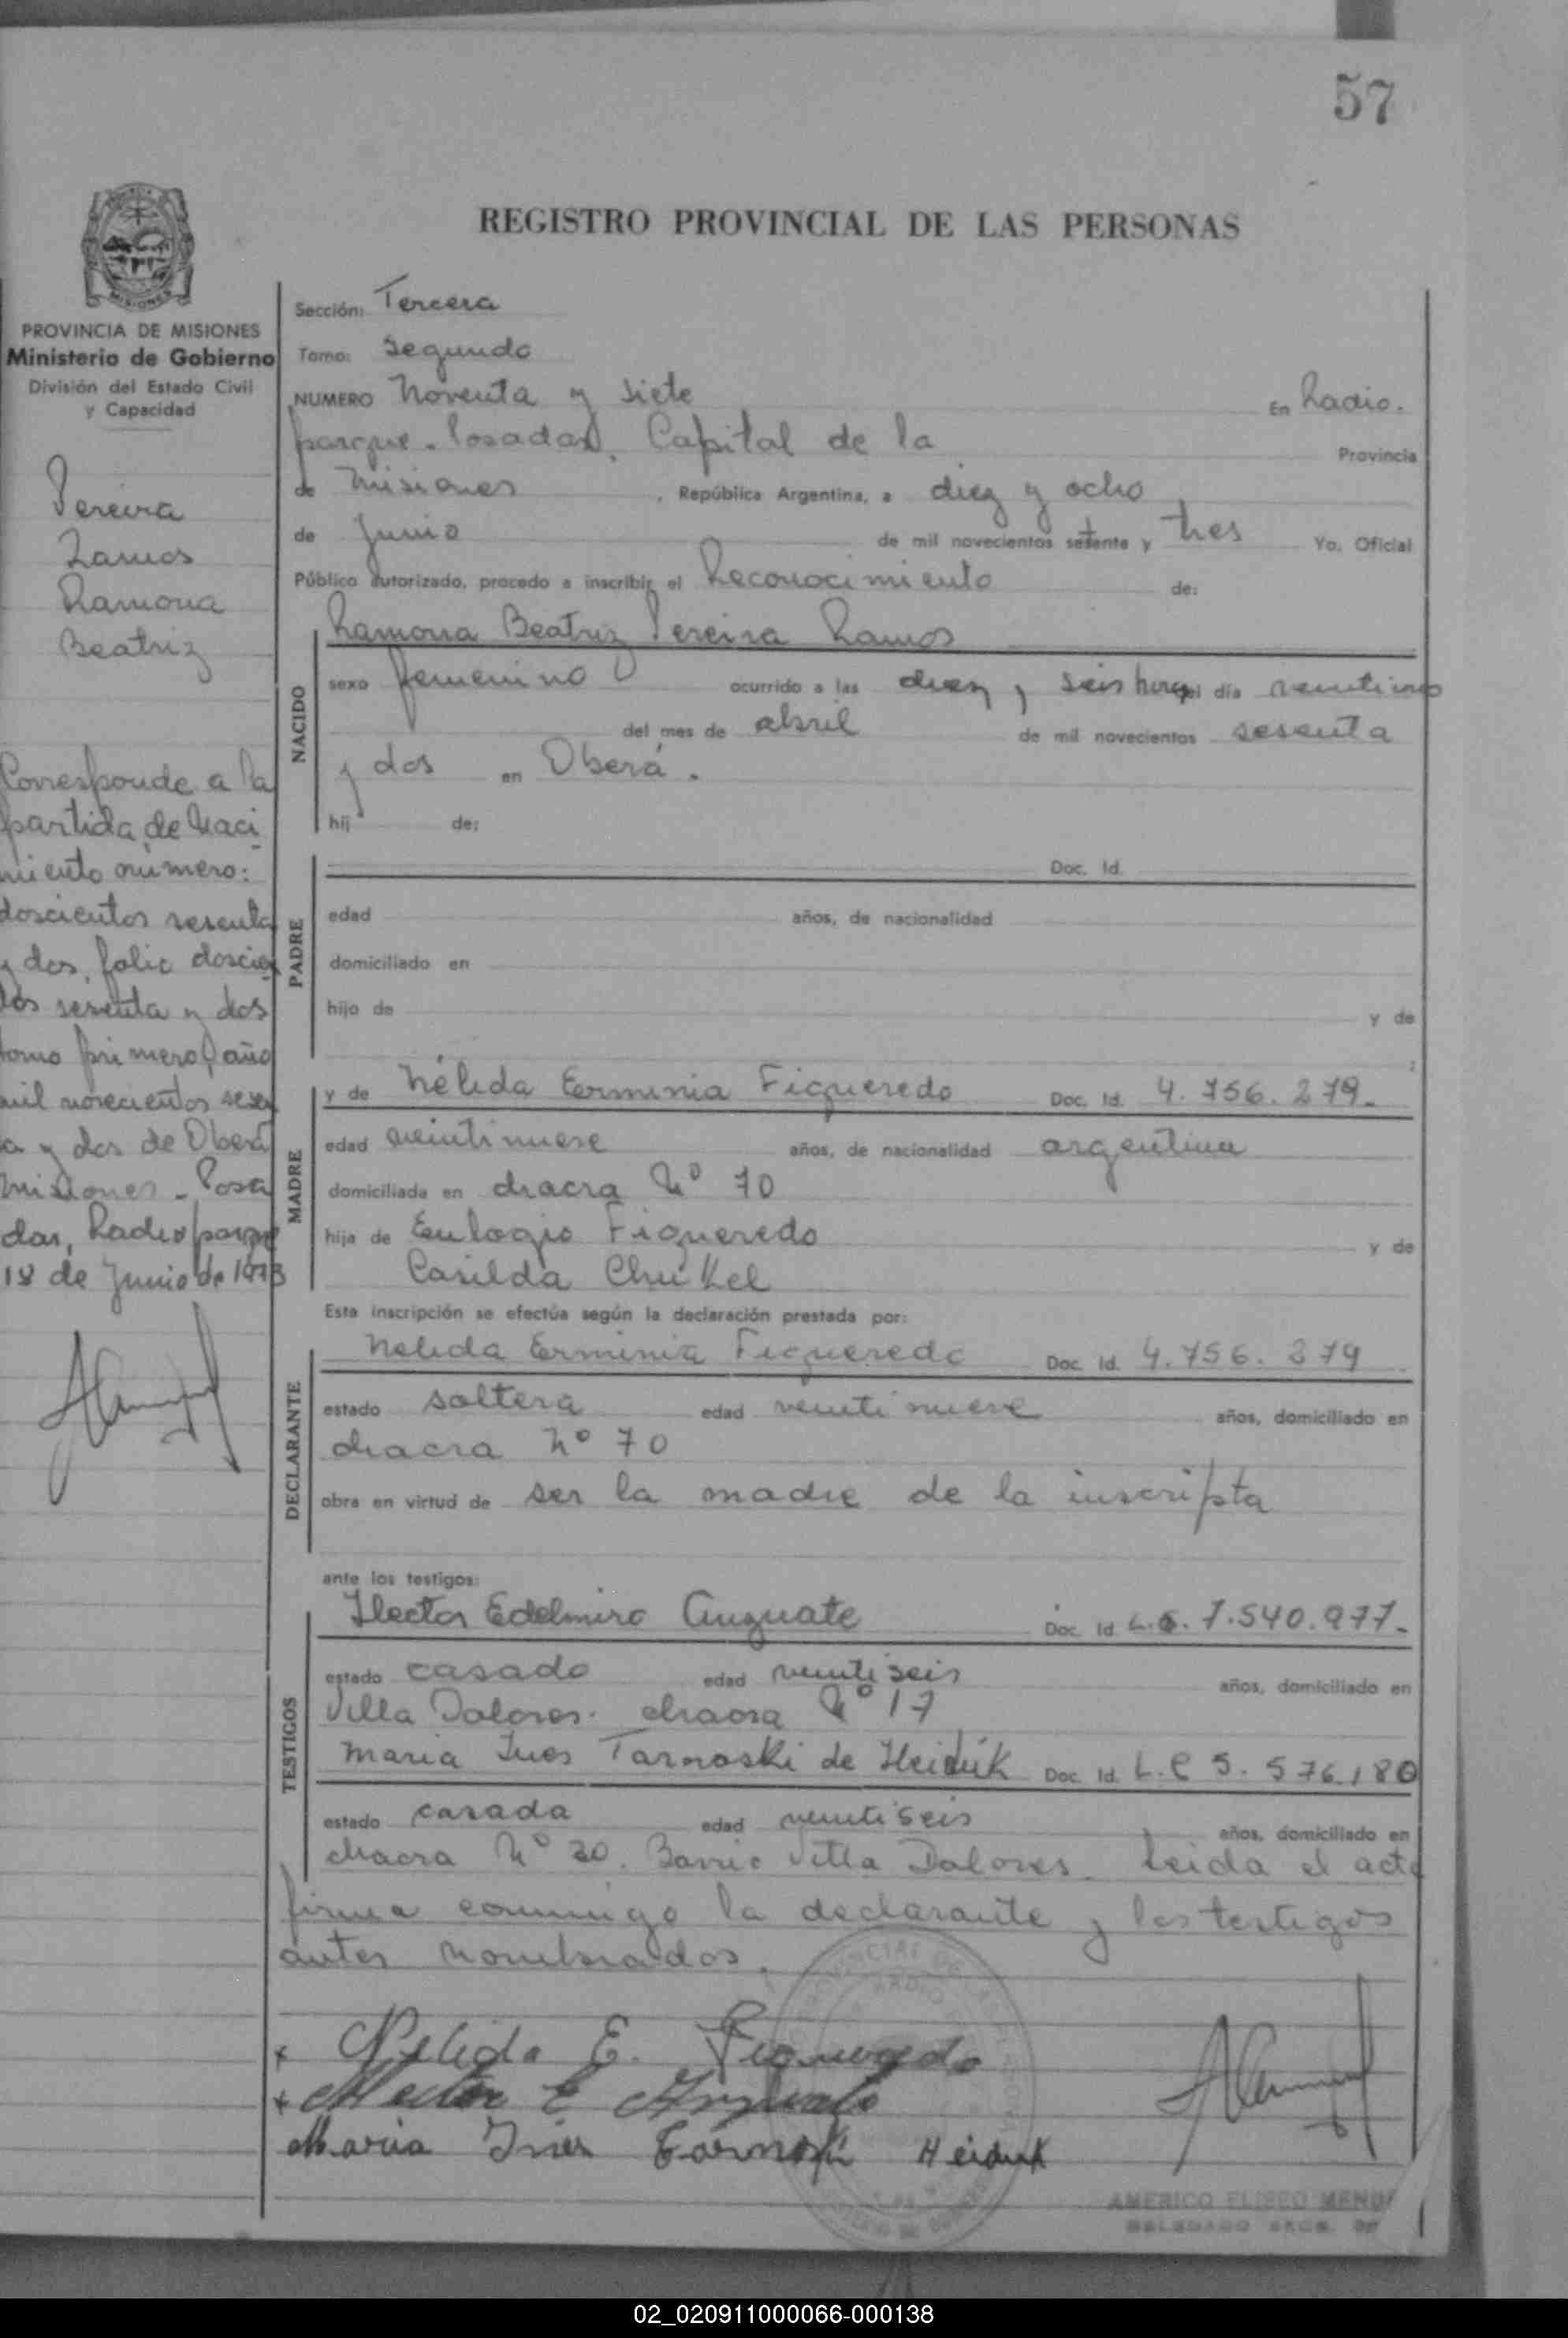 57
REGISTRO PROVINCIAL DE LAS PERSONAS
PROVINCIA DE MISIONES
Ministerio de Gobierno
División del Estado Civil
y Capacidad
Pereira
Ramos
Ramona
Beatriz
Corresponde a la
partida de Naci
miento número:
doscientos sesenta
y dos, folio doscien
tos sesenta y dos
tomo primero, año
mil novecientos sesen
ta y dos de Oberá
Misiones - Posa
das, Radio parque
18 de Junio de 1973
Sección: Tercera
Tomo: Segundo
NUMERO Noventa y siete En Radio.
parque - Posadas, Capital de la Provincia
de Misiones, República Argentina, a diez y ocho
de Junio de mil novecientos setenta y tres Yo, Oficial
Público autorizado, procedo a inscribir el Reconocimiento de:
Ramona Beatriz Pereira Ramos
NACIDO
sexo femenino ocurrido a las diez y seis horas del día
del mes de abril de mil novecientos sesenta
y dos en Oberá.
hij de:
PADRE
Doc. Id.
edad años, de nacionalidad
domiciliado en
hijo de y de
MADRE
y de Nélida Erminia Figueredo Doc. Id. 4.756.279.
edad veintinueve años, de nacionalidad argentina
domiciliada en chacra Nº 70
hija de Eulogio Figueredo y de
Casilda
Esta inscripción se efectúa según la declaración prestada por:
DECLARANTE
Nelida Erminia Figueredo Doc. Id. 4.756.279
estado soltera edad veintinueve años, domiciliado en
chacra Nº 70
obra en virtud de ser la madre de la inscripta
ante los testigos:
TESTIGOS
Hector Edelmiro Doc. Id. 7.540.977.-
estado casado edad veintiseis años, domiciliado en
Villa Dolores. chacra Nº 17
Maria Ines de Heiduk Doc. Id. L.C 5.576.180
estado casada edad veintiseis años, domiciliado en
chacra Nº 20. Barrio Villa Dolores. Leida el acta
firma conmigo la declarante y los testigos
antes nombrados.
Nelida E. Figueredo
Hector E
Maria Ines Heiduk
AMERICO ELISEO
02_020911000066-000138